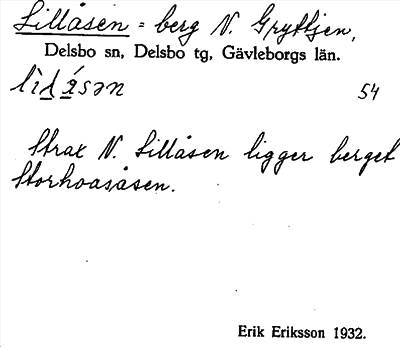 Lillåsen = berg N. Gryttjen,
Delsbo sn, Delsbo tg, Gävleborgs län.
54
Strax N. Lillåsen ligger berget
Storhoasåsen.
Erik Eriksson 1932.